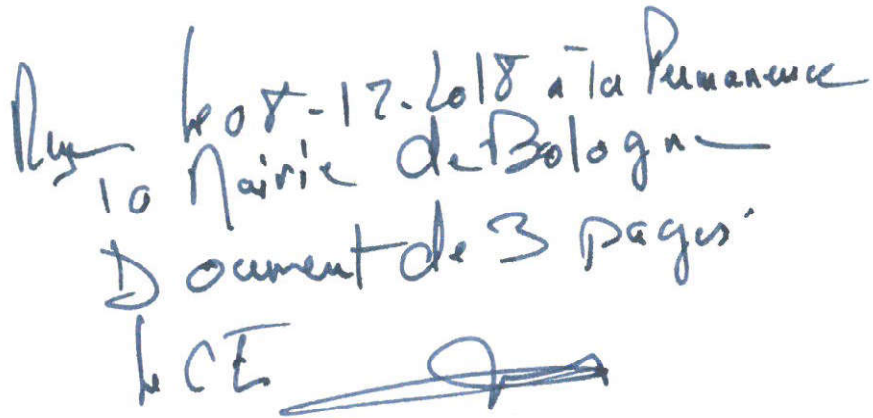 Reçu le 08-12-2018 à la Permanence
la Mairie de Bologne
Document de 3 pages.
Le CE